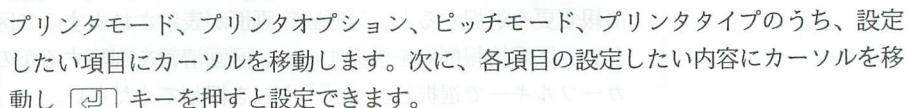 プリンタモード、プリンタオプション、ピッチモード、プリンタタイプのうち、設定
したい項目にカーソルを移動します。次に、各項目の設定したい内容にカーソルを移
動し ⏎ キーを押すと設定できます。